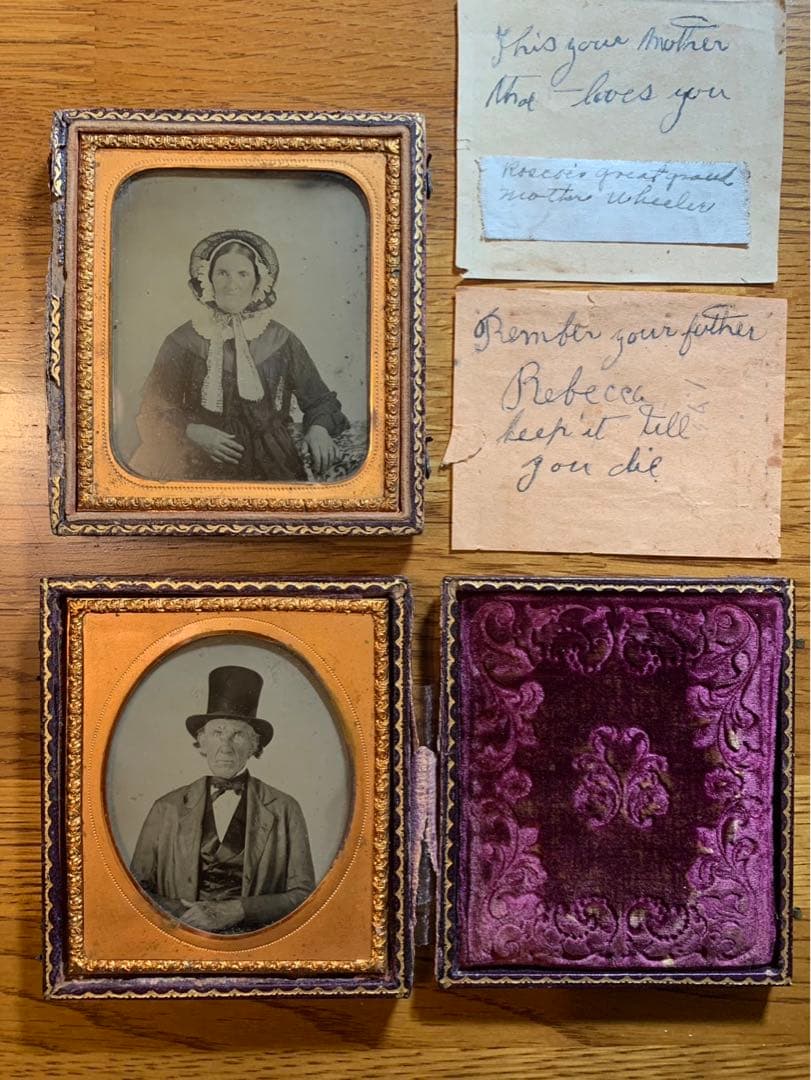 This your Mother
that loves you
Roscoe's great grand
mother Wheeler
Rember your futher
Rebecca
keep it till
you die